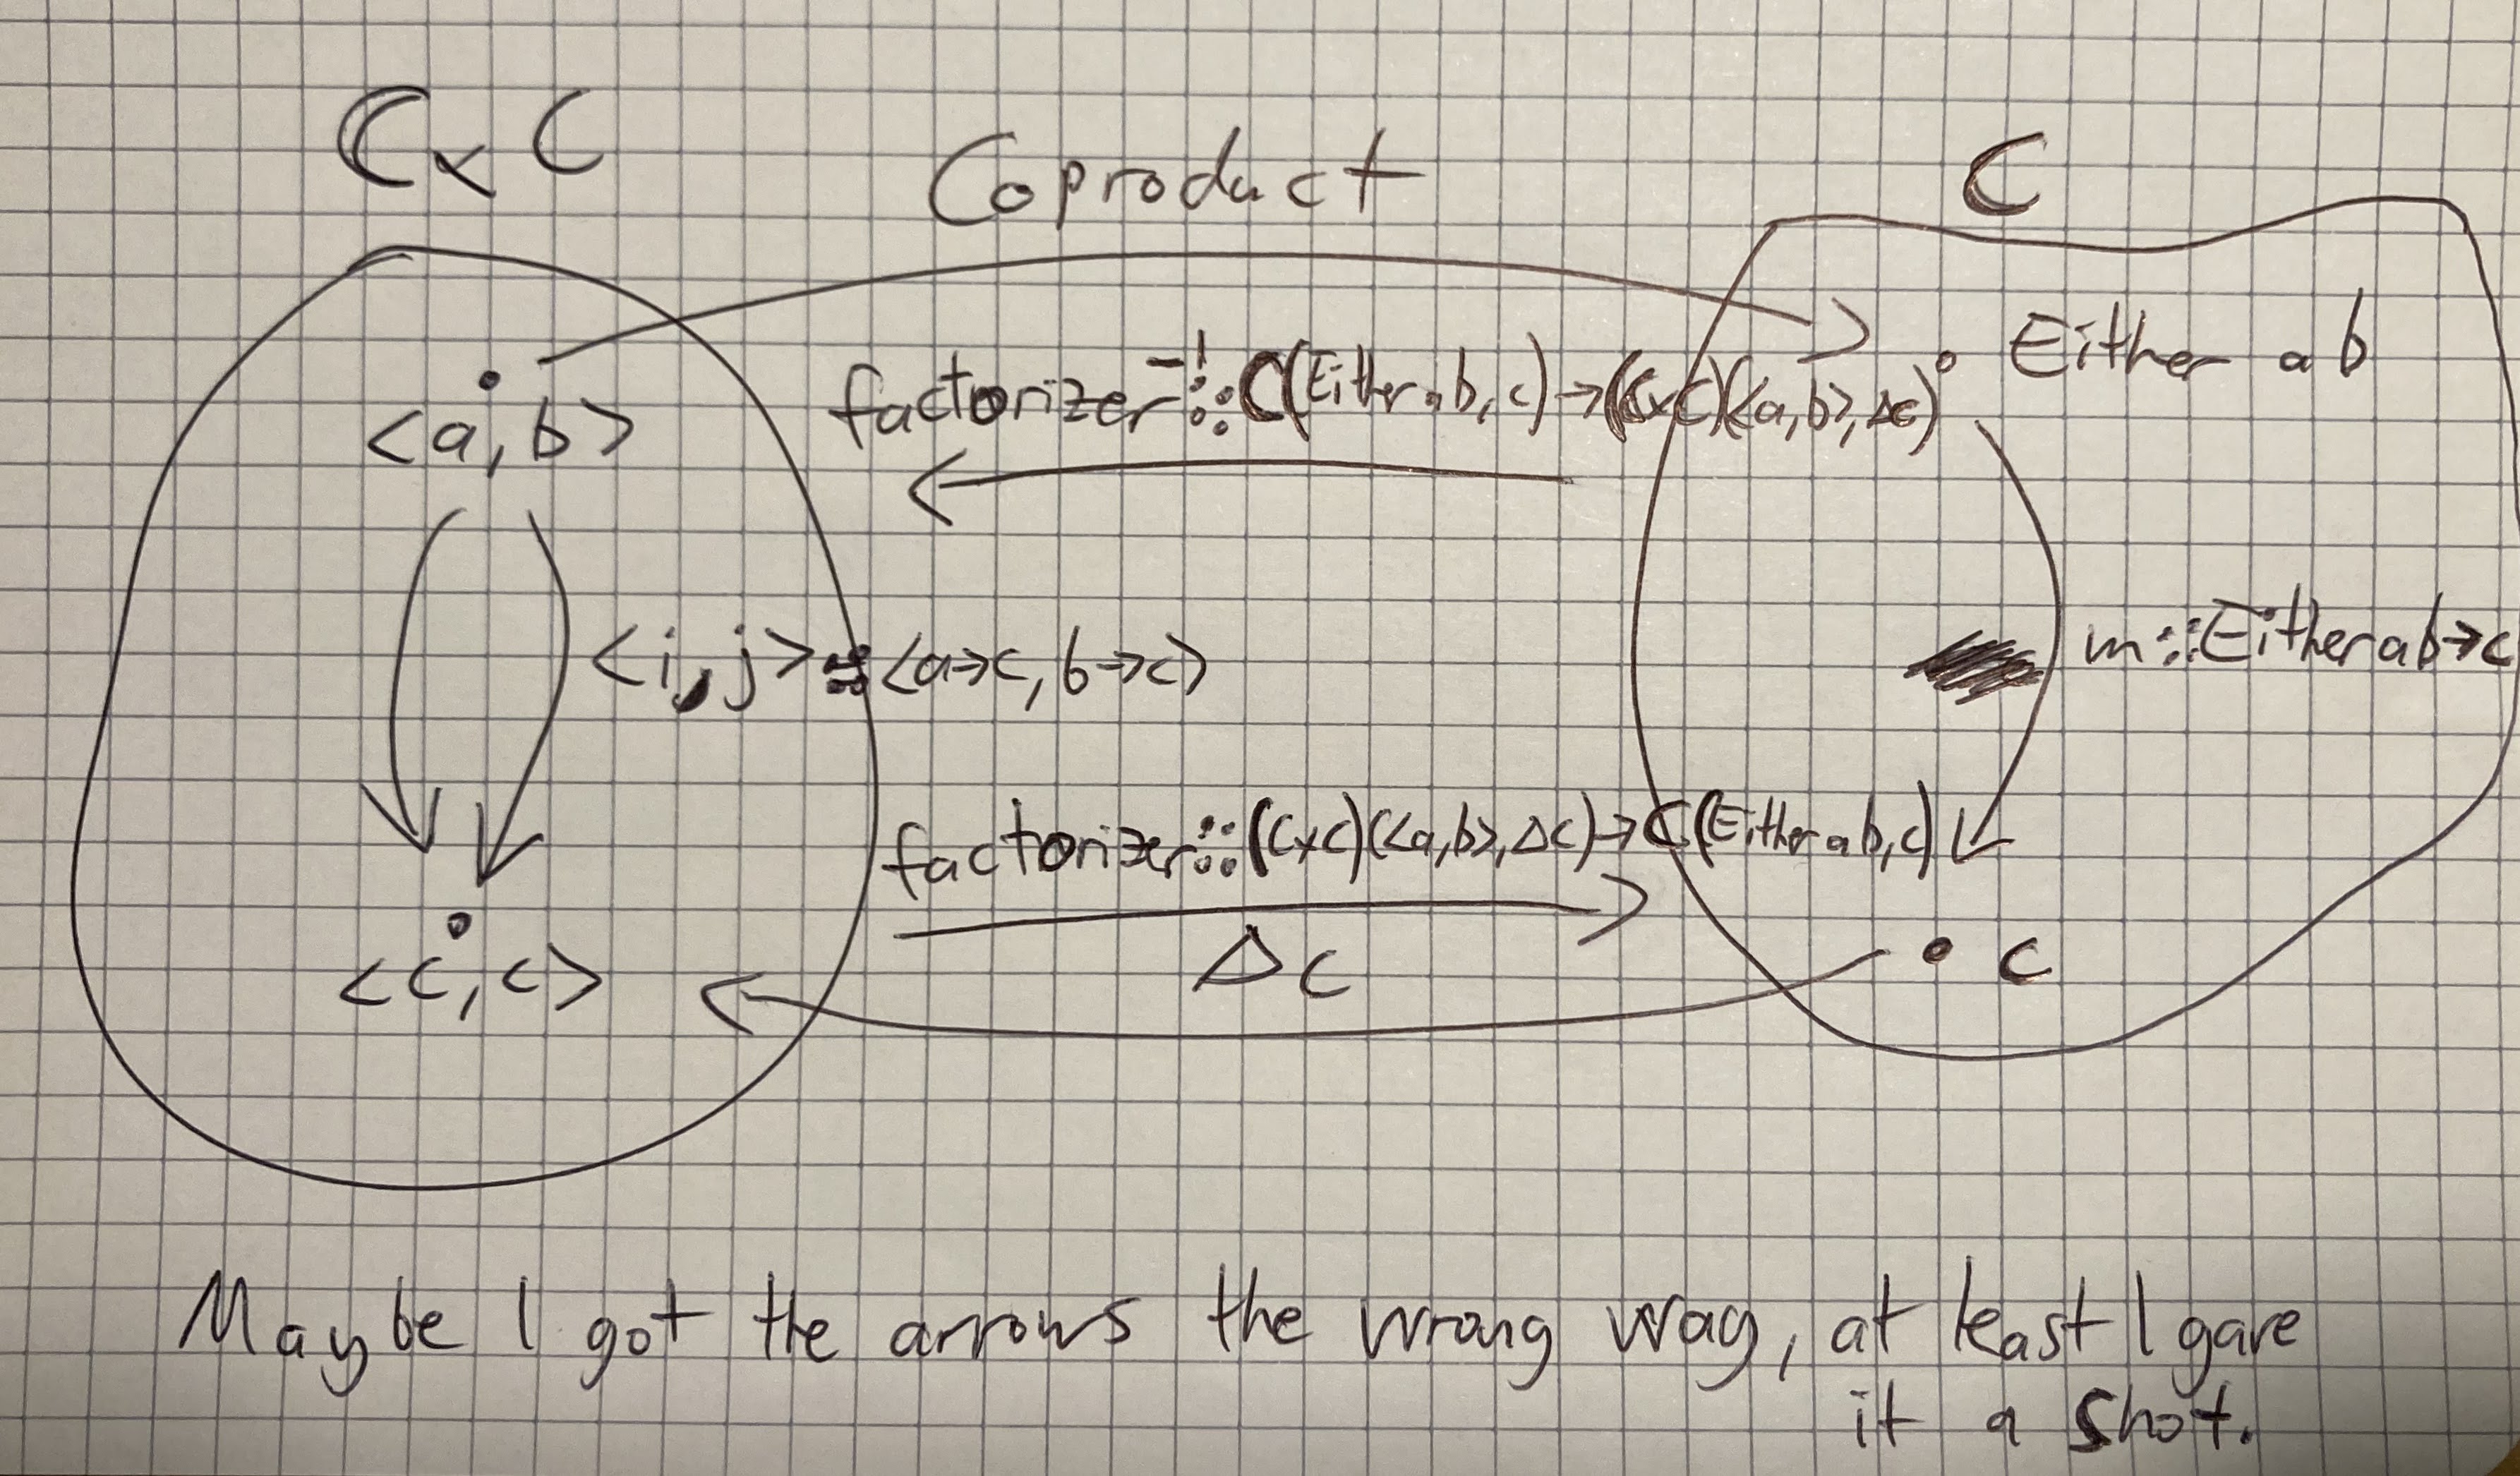 C×C
Coproduct
C
Either a b
factorizer⁻¹ :: C(Either a b, c) → (C×C)(<a, b>, Δc)
<a, b>
<i, j> :: <a→c, b→c>
m :: Either a b → c
factorizer :: (C×C)(<a, b>, Δc) → C(Either a b, c)
Δc
<c, c>
c
Maybe I got the arrows the wrong way, at least I gave
it a shot.